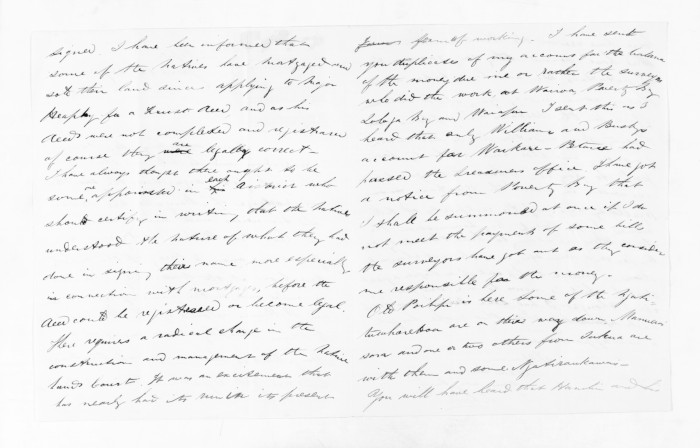 signed. I have been informed that
some of the natives have mortgaged or
sold their land since applying to Major
Heaphy for a trust deed and as his
deeds were not completed and registered
of course they are legally correct —
I have always thought there ought to be
some one appointed in each district who
should certify in writing, that the natives
understood the nature of what they had
done in signing their name more especially
in connection with mortgages, before the
deed could be registered or become legal.
There requires a radical change in the
construction and management of the Native
lands Courts. It was an excitement that
has nearly had its in its present
form of working. I have sent
you duplicates of my accounts for the balance
of the money due me or rather the surveyors
who did the work at Wairoa, Poverty Bay
Tolaga Bay and Waiapu. I sent this as I
heard that only Williams and Bushys
account for Waikare - had
passed the Treasurers office. I have got
a notice from Poverty Bay that
I shall be summoned at once if I do
not meet the payments of some bills
the surveyors have got out as they consider
me responsible for the money. —
is here, some of the Ngati-
are on their way down
and one or two others from are
with them and some Ngatiraukawas —
You will have heard that and his